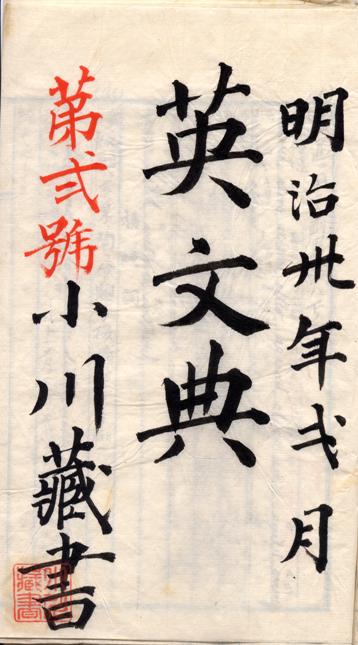 明治卅年弐月
英文典
第弐號
小川藏書